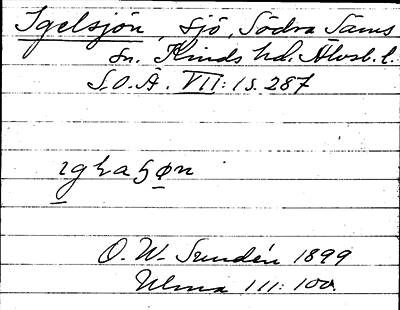 Igelsjön, sjö, Södra Säms
sn. Kinds hd. Älvsb. l.
S.O.Ä. VII:1 s. 287
O. W. Sundén 1899
Ulma 111:100.